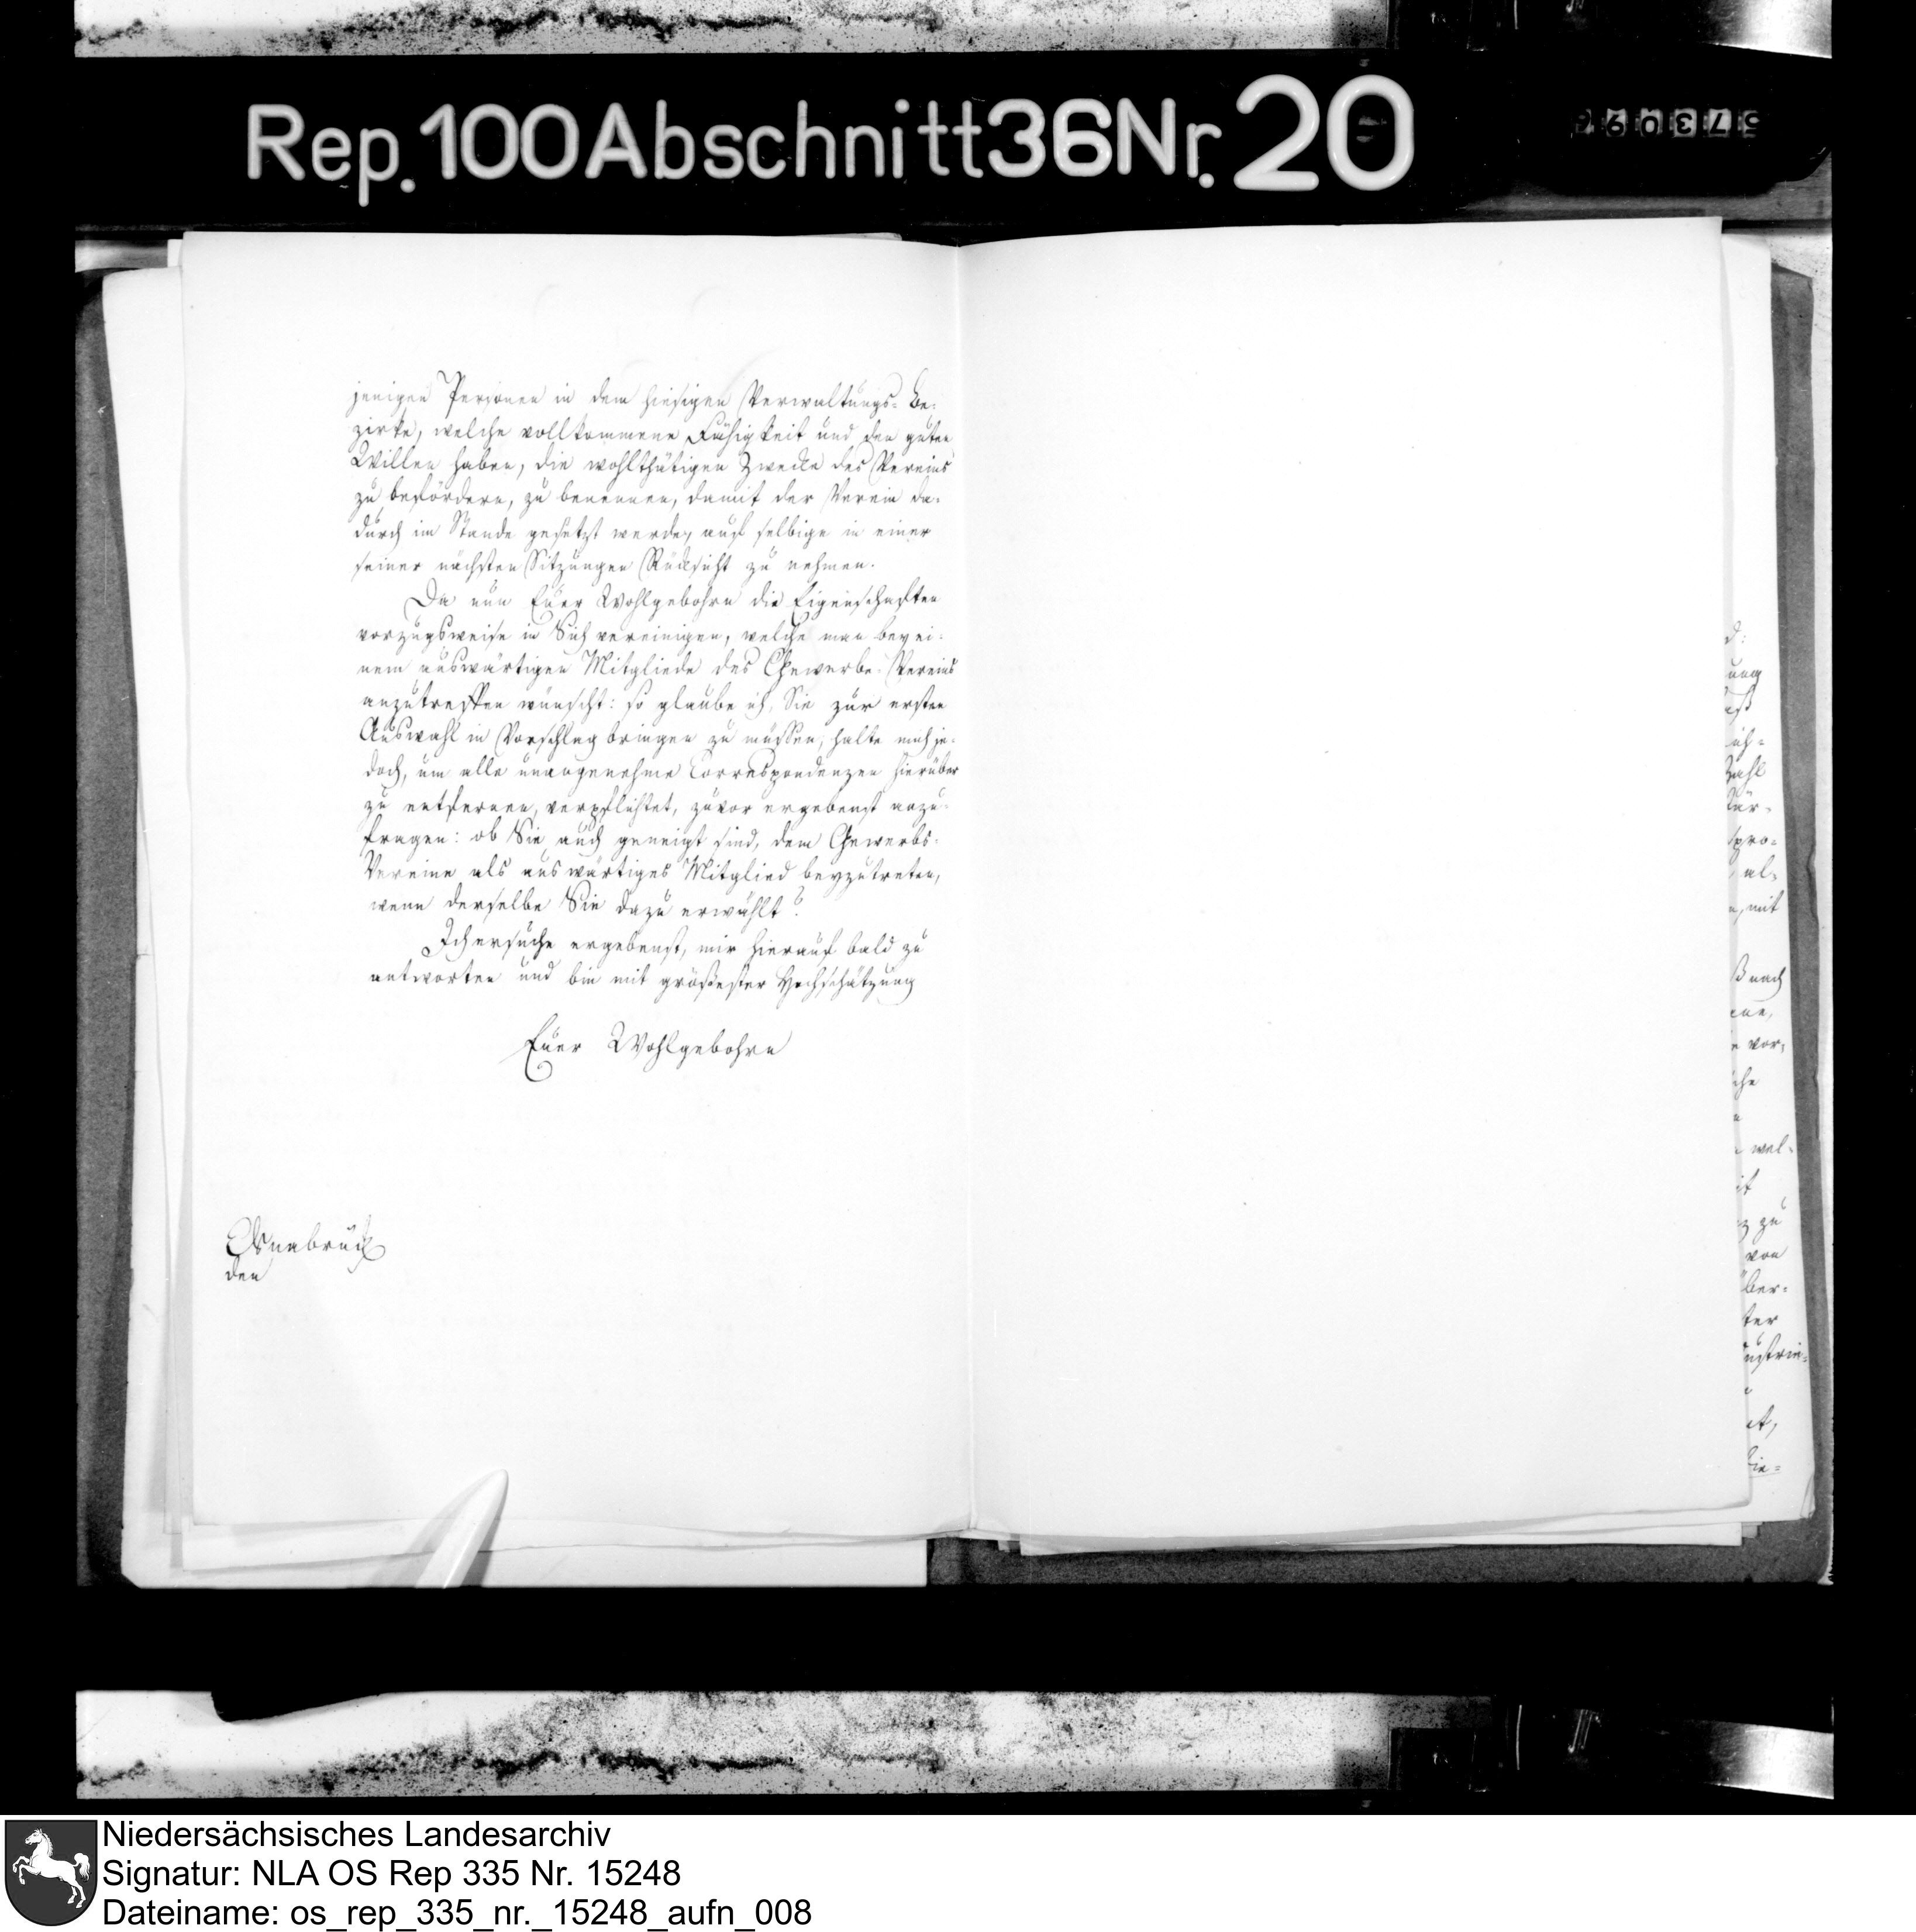 Rep. 100 Abschnitt 36 Nr. 20
jenigen Personen in dem hiesigen Verwaltungs- Be-
zirke, welche vollkommene Fähigkeit und den guten
Willen haben, die wohlthätigen Zwecke des Vereins
zu befördern, zu benennen, damit der Verein da-
durch im Stande gesetzt werde, auf selbige in einer
seiner nächsten Sitzungen Rücksicht zu nehmen.
Da nun Euer Wohlgebohrn die Eigenschaften
vorzugsweise in Sich vereinigen, welche man bey ei-
nem auswärtigen Mitgliede des Gewerbe-Vereins
anzutreffen wünscht: so glaube ich, Sie zur ersten
Auswahl in Vorschlag bringen zu müssen, halte mich je-
doch, um alle unangenehme Correspondenzen hierüber
zu entfernen, verpflichtet, zuvor ergebenst anzu-
fragen: ob Sie auch geneigt sind, dem Gewerbs-
Vereine als auswärtiges Mitglied beyzutreten,
wenn derselbe Sie dazu erwählt?
Ich ersuche ergebenst, mir hierauf bald zu
antworten und bin mit größester Hochschätzung
Euer Wohlgebohrn
Osnabrück
den
ung
ich-
Zahl
al-
mit
nach
vor,
che
wel-
zu
von
ber-
ter
Niedersächsisches Landesarchiv
Signatur: NLA OS Rep 335 Nr. 15248
Dateiname: os_rep_335_nr._15248_aufn_008